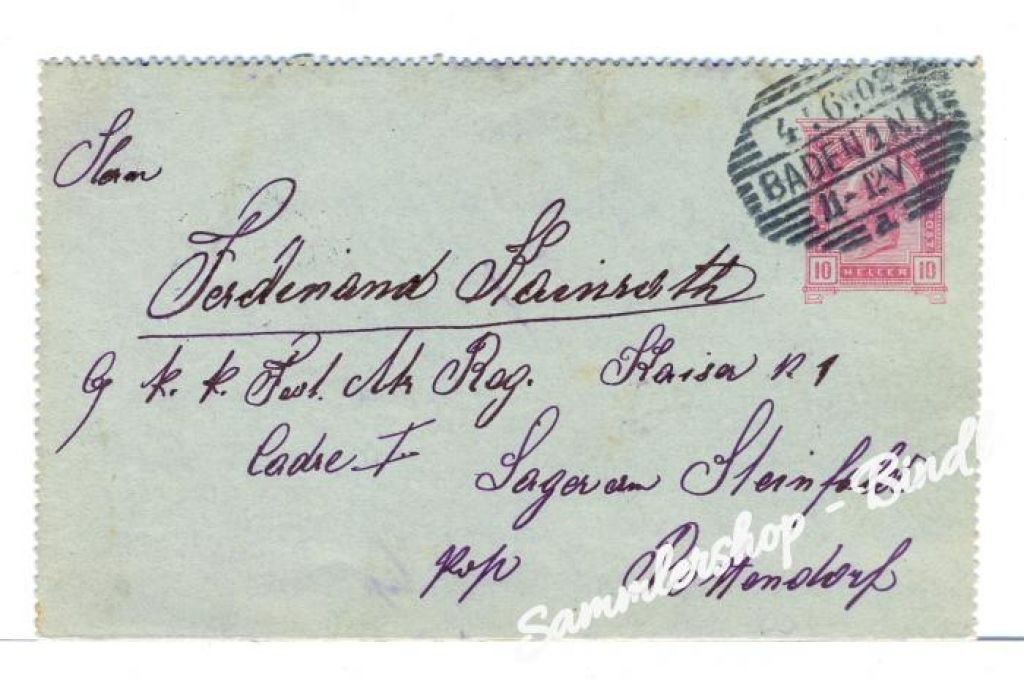 4.6.02
BADEN 1 N.Ö.
11-12V
a
10 HELLER 10
Herrn
Ferdinand Kainrath
k. k. Fest. Art. Reg. Kaiser N 1
Cadre I Lager am Steinfelde
Post Pottendorf
Sammlershop - Bindl